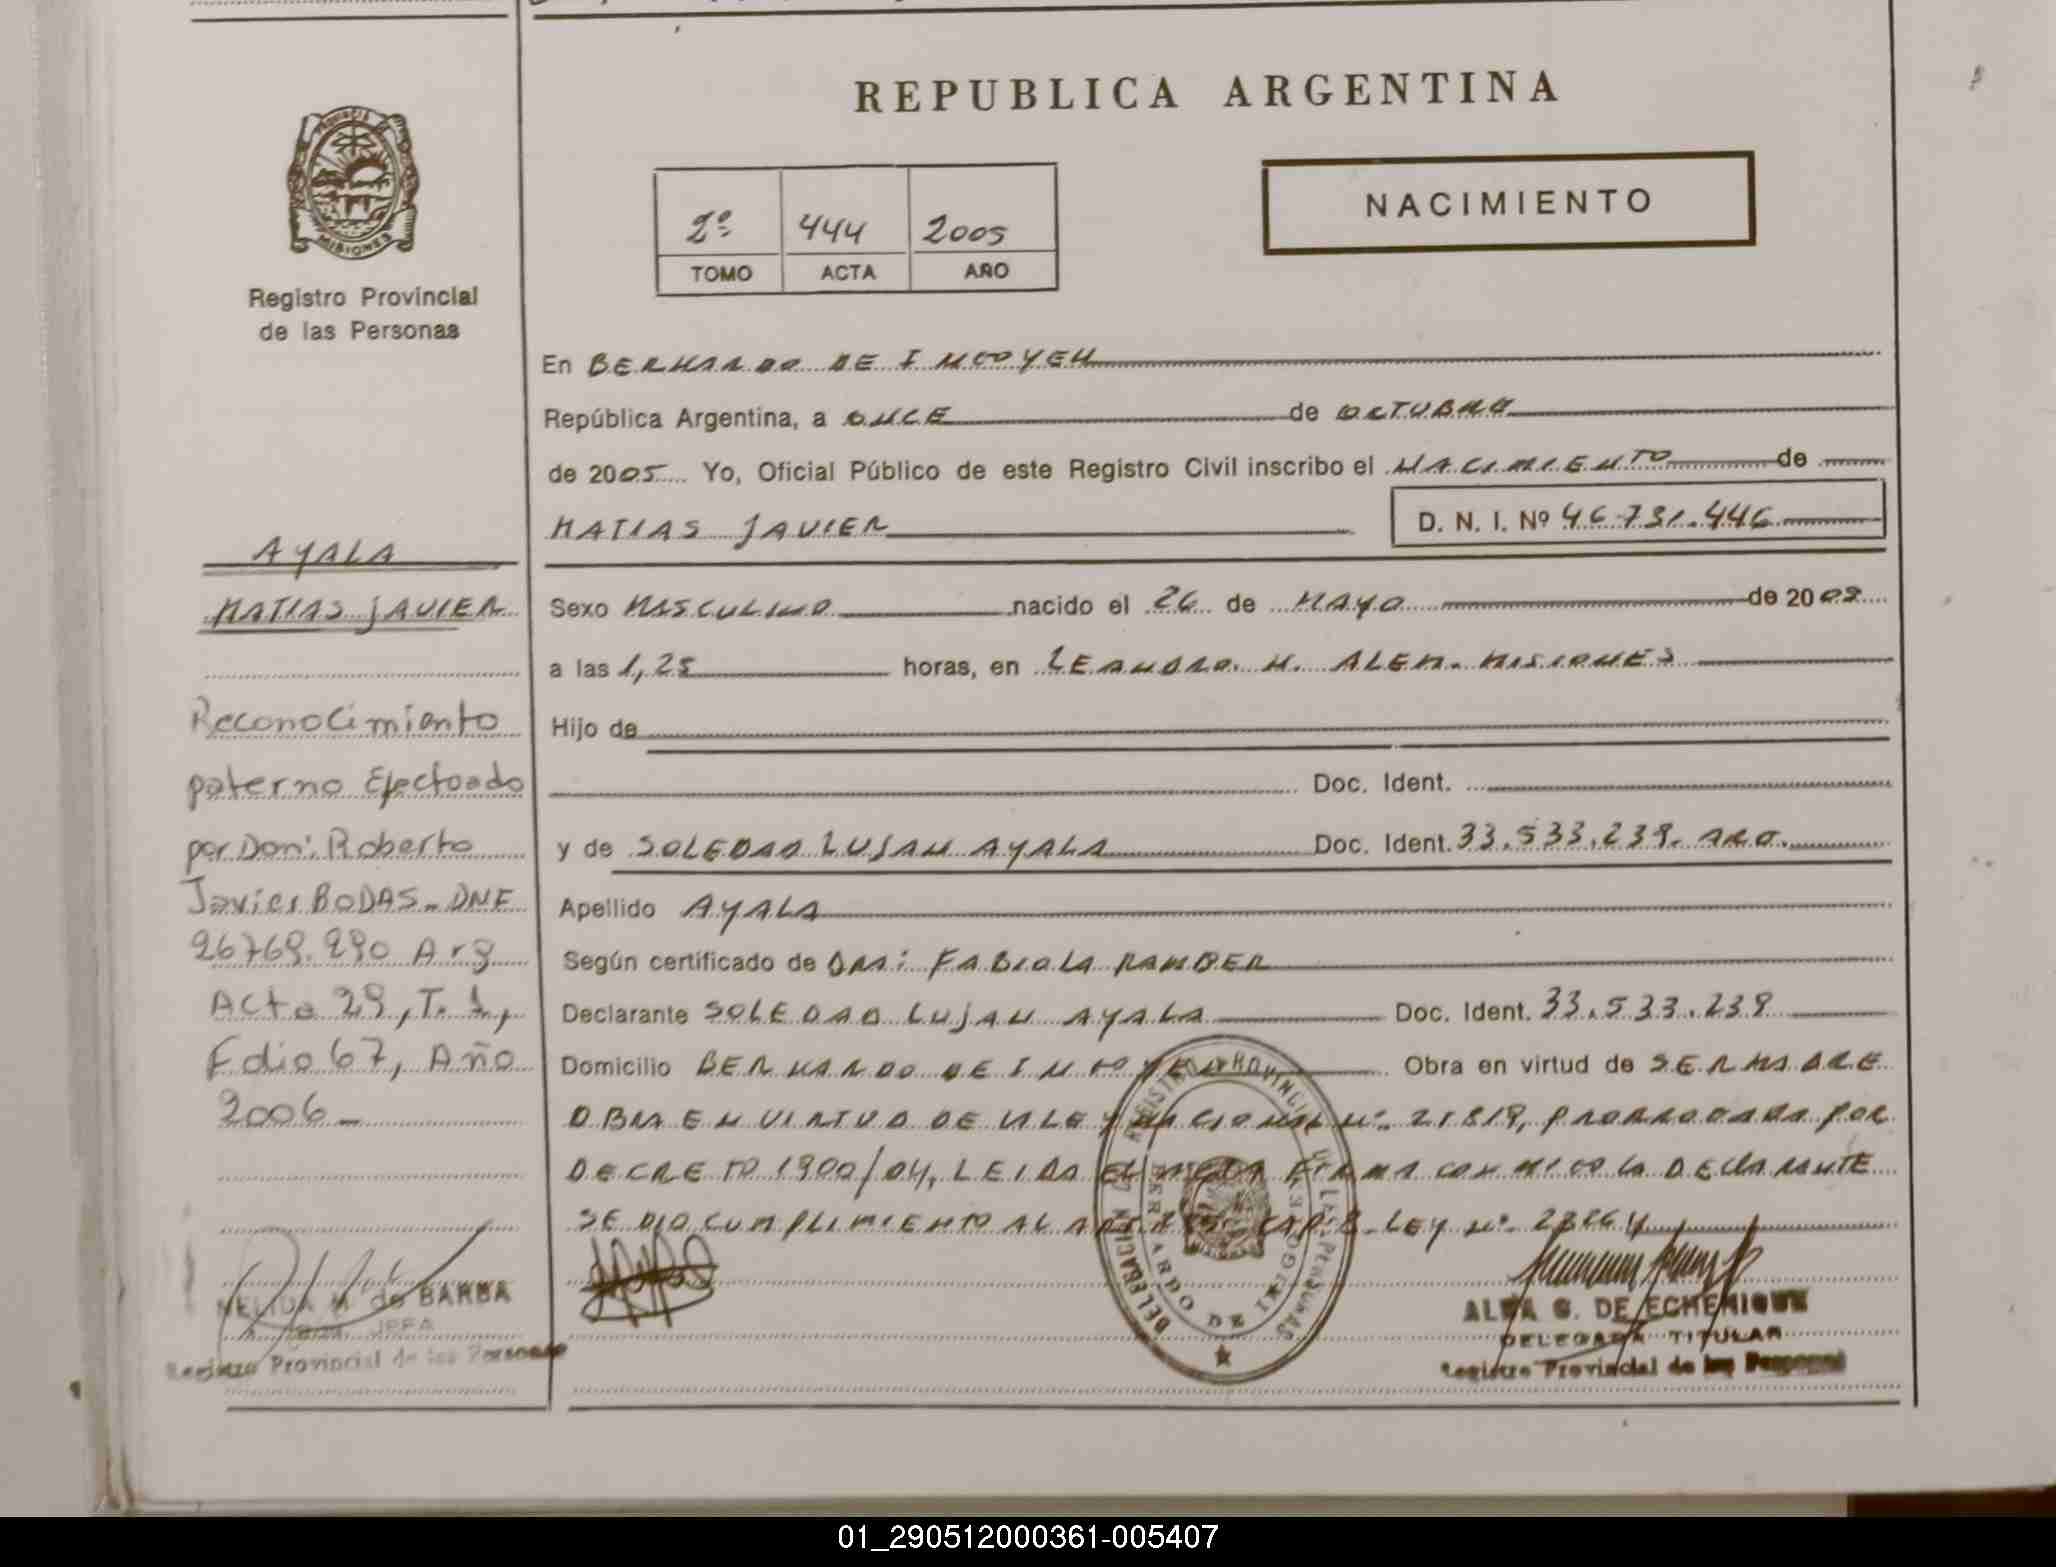 REPUBLICA ARGENTINA
PROVINCIA DE
MISIONES
Registro Provincial
de las Personas
2º 444 2005
TOMO ACTA AÑO
NACIMIENTO
En BERNARDO DE IRIGOYEN
República Argentina, a ONCE de OCTUBRE
de 2005 Yo, Oficial Público de este Registro Civil inscribo el NACIMIENTO de
MATIAS JAVIER D. N. I. Nº 46.731.446
AYALA
MATIAS JAVIER
Sexo MASCULINO nacido el 26 de MAYO de 20
a las 1,25 horas, en LEANDRO. N. ALEM. MISIONES
Hijo de
Doc. Ident.
y de SOLEDAD LUJAN AYALA Doc. Ident. 33.533.239. ARG.
Apellido AYALA
Según certificado de DRA: FABIOLA
Declarante SOLEDAD LUJAN AYALA Doc. Ident. 33.533.239
Domicilio BERNARDO DE IRIGOYEN Obra en virtud de
OBRA EN VIRTUD DE LA LEY NACIONAL Nº. 21819, PRORROGADA POR
DECRETO 1900/04, LEIDA EL ACTA FIRMA CONMIGO LA DECLARANTE
SE DIO CUMPLIMIENTO AL ART. LEY Nº.
Reconocimiento
paterno Efectuado
por Don: Roberto
Javier BODAS - DNI
26769.290 Arg
Acta 29, T. 1,
Folio 67, Año
2006 -
NELIDA M. de BARBA
JEFA
Registro Provincial de las Personas
DELEGACION DEL REGISTRO PROVINCIAL DE LAS PERSONAS
BERNARDO DE IRIGOYEN
ALBA G. DE ECHENIQUE
DELEGADA TITULAR
Registro Provincial de las Personas
01_290512000361-005407